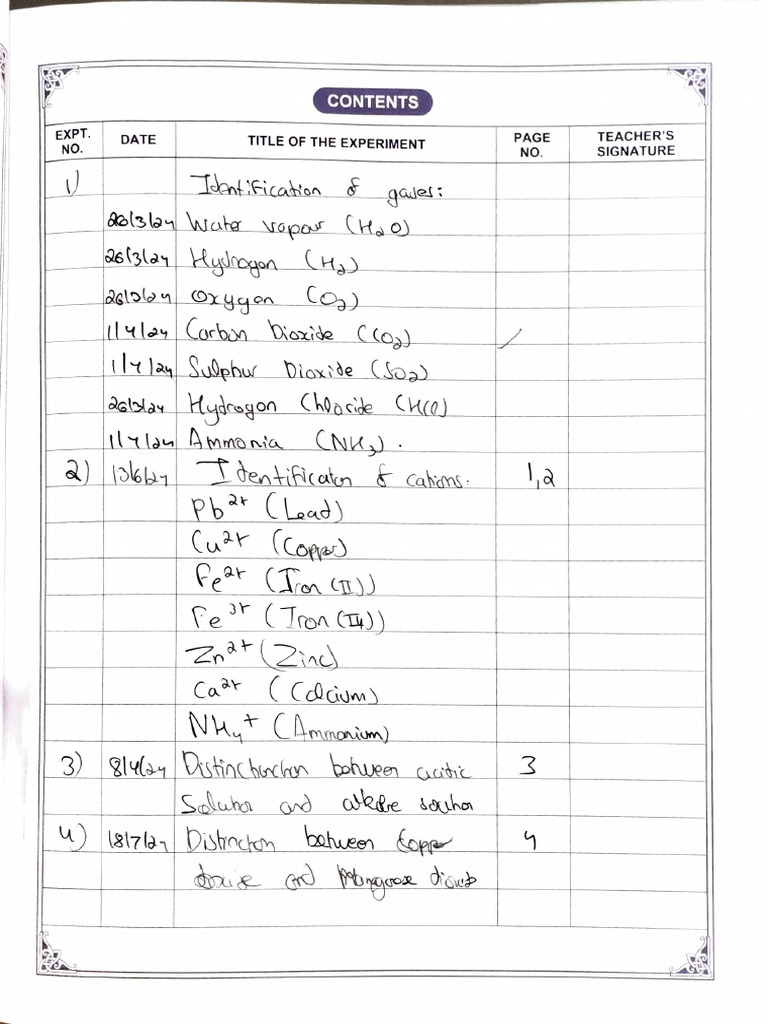 CONTENTS
EXPT. NO. DATE TITLE OF THE EXPERIMENT PAGE NO. TEACHER'S SIGNATURE
1) Identification of gases:
26/3/24 Water vapour (H2O)
26/3/24 Hydrogen (H2)
26/3/24 Oxygen (O2)
1/4/24 Carbon Dioxide (CO2)
1/4/24 Sulphur Dioxide (SO2)
26/3/24 Hydrogen Chloride (HCl)
1/4/24 Ammonia (NH3).
2) 13/6/24 Identification of cations. 1,2
Pb2+ (Lead)
Cu2+ (Copper)
Fe2+ (Iron (II))
Fe3+ (Iron (III))
Zn2+ (Zinc)
Ca2+ (Calcium)
NH4+ (Ammonium)
3) 8/4/24 between acidic 3
Solution and solution
4) 18/7/24 Distinction between Copper 4
and